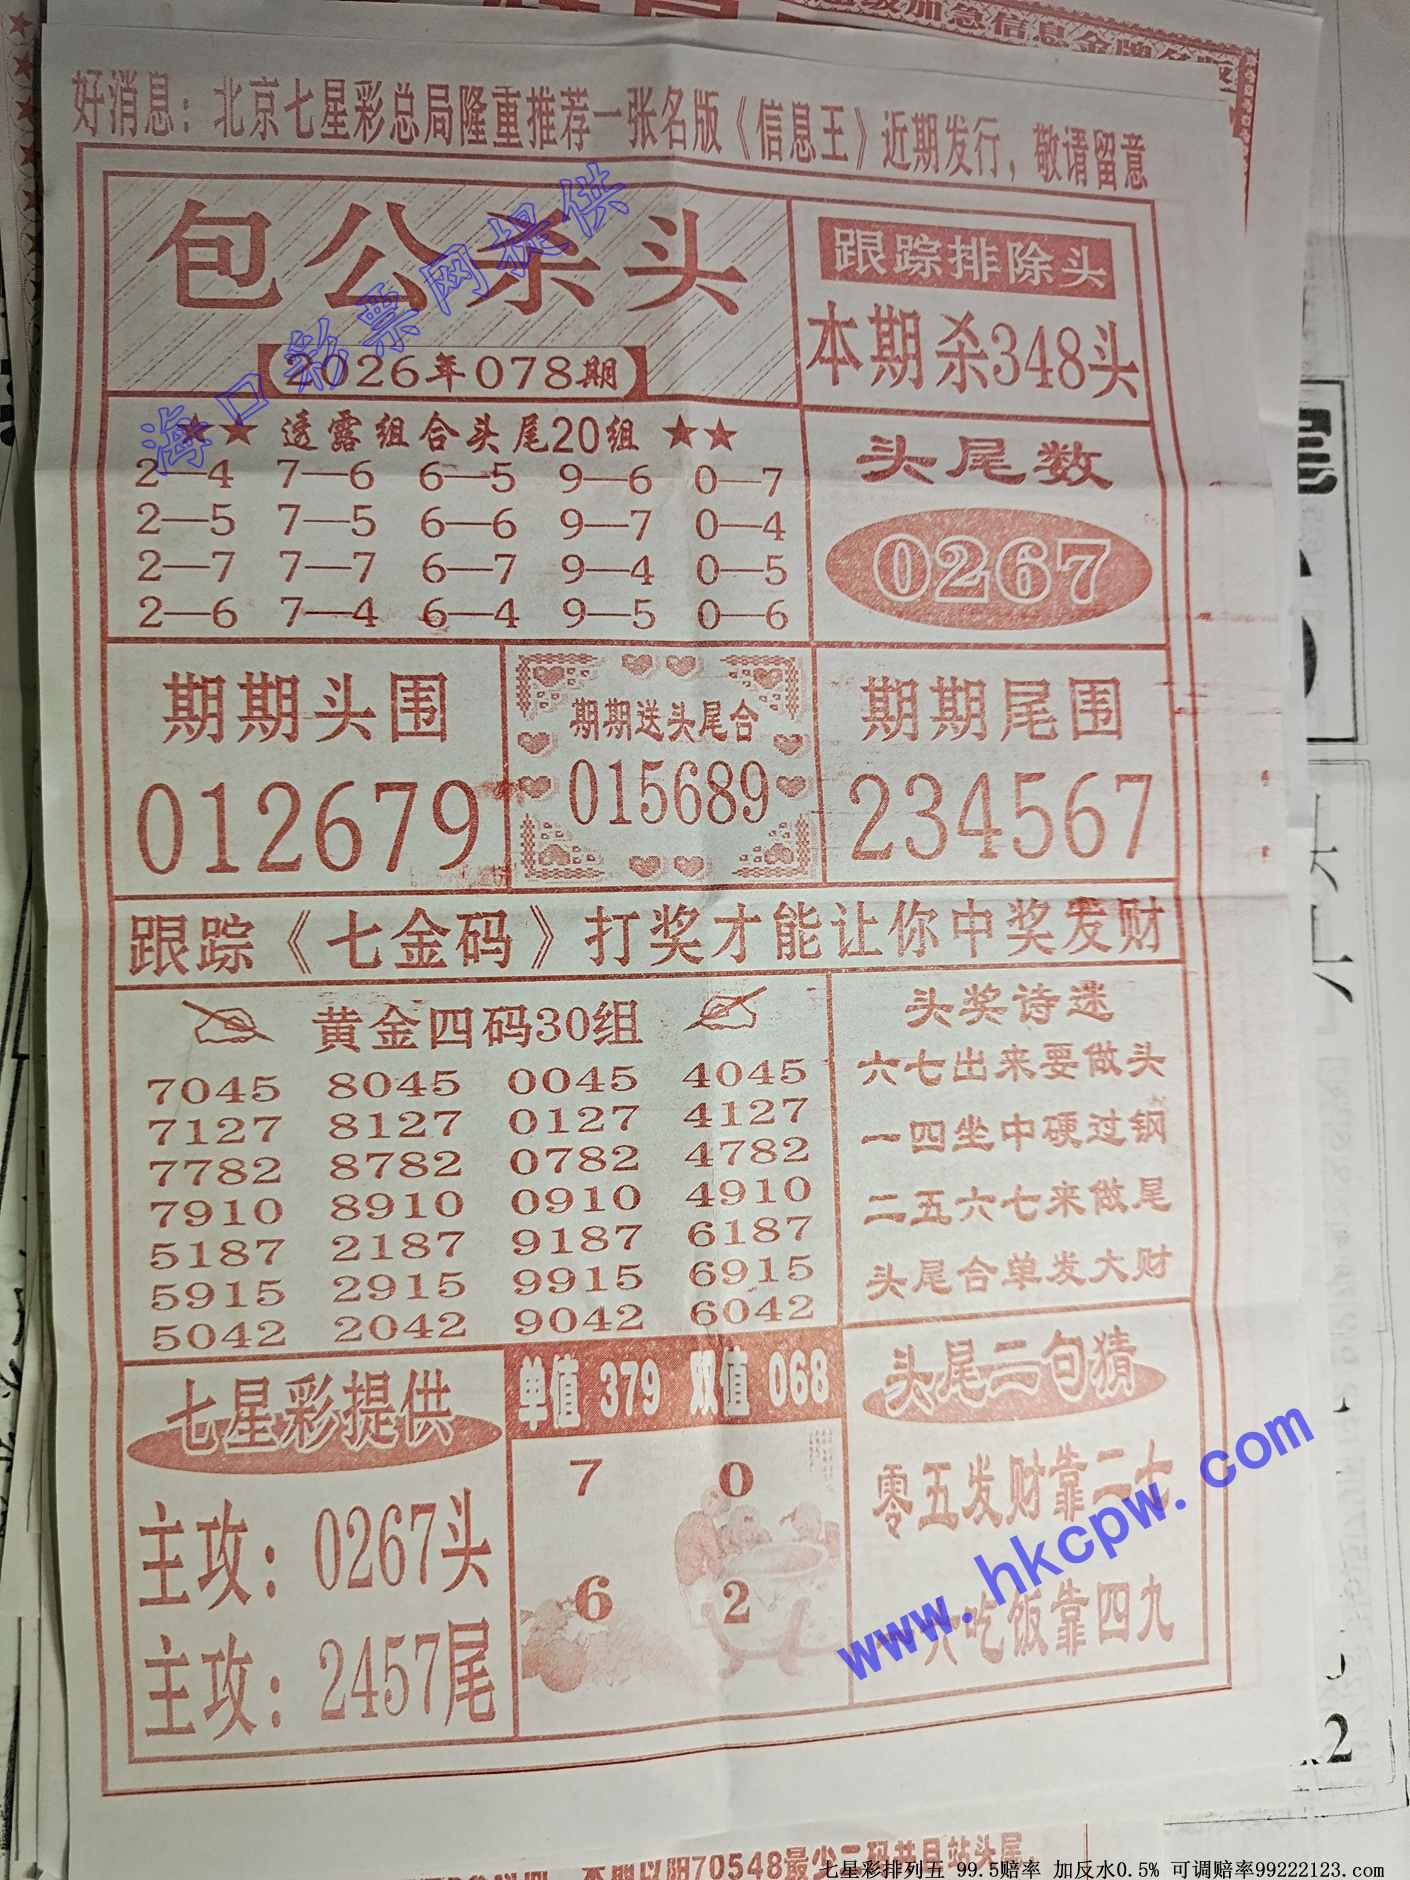 级加急信息金牌名版
好消息：北京七星彩总局隆重推荐一张名版《信息王》近期发行，敬请留意
包公杀头
【2026年078期】
跟踪排除头
本期杀348头
★★ 透露组合头尾20组 ★★
2—4 7—6 6—5 9—6 0—7
2—5 7—5 6—6 9—7 0—4
2—7 7—7 6—7 9—4 0—5
2—6 7—4 6—4 9—5 0—6
头尾数
0267
期期头围
012679
期期送头尾合
015689
期期尾围
234567
跟踪《七金码》打奖才能让你中奖发财
黄金四码30组
7045 8045 0045 4045
7127 8127 0127 4127
7782 8782 0782 4782
7910 8910 0910 4910
5187 2187 9187 6187
5915 2915 9915 6915
5042 2042 9042 6042
头奖诗迷
六七出来要做头
一四坐中硬过钢
二五六七来做尾
头尾合单发大财
七星彩提供
主攻：0267头
主攻：2457尾
单值 379 双值 068
7 0
6 2
头尾二句猜
零五发财靠二七
吃饭靠四九
海口彩票网提供
www.hkcpw.com
70548最少二码共日站头尾，
七星彩排列五 99.5赔率 加反水0.5% 可调赔率99222123.com